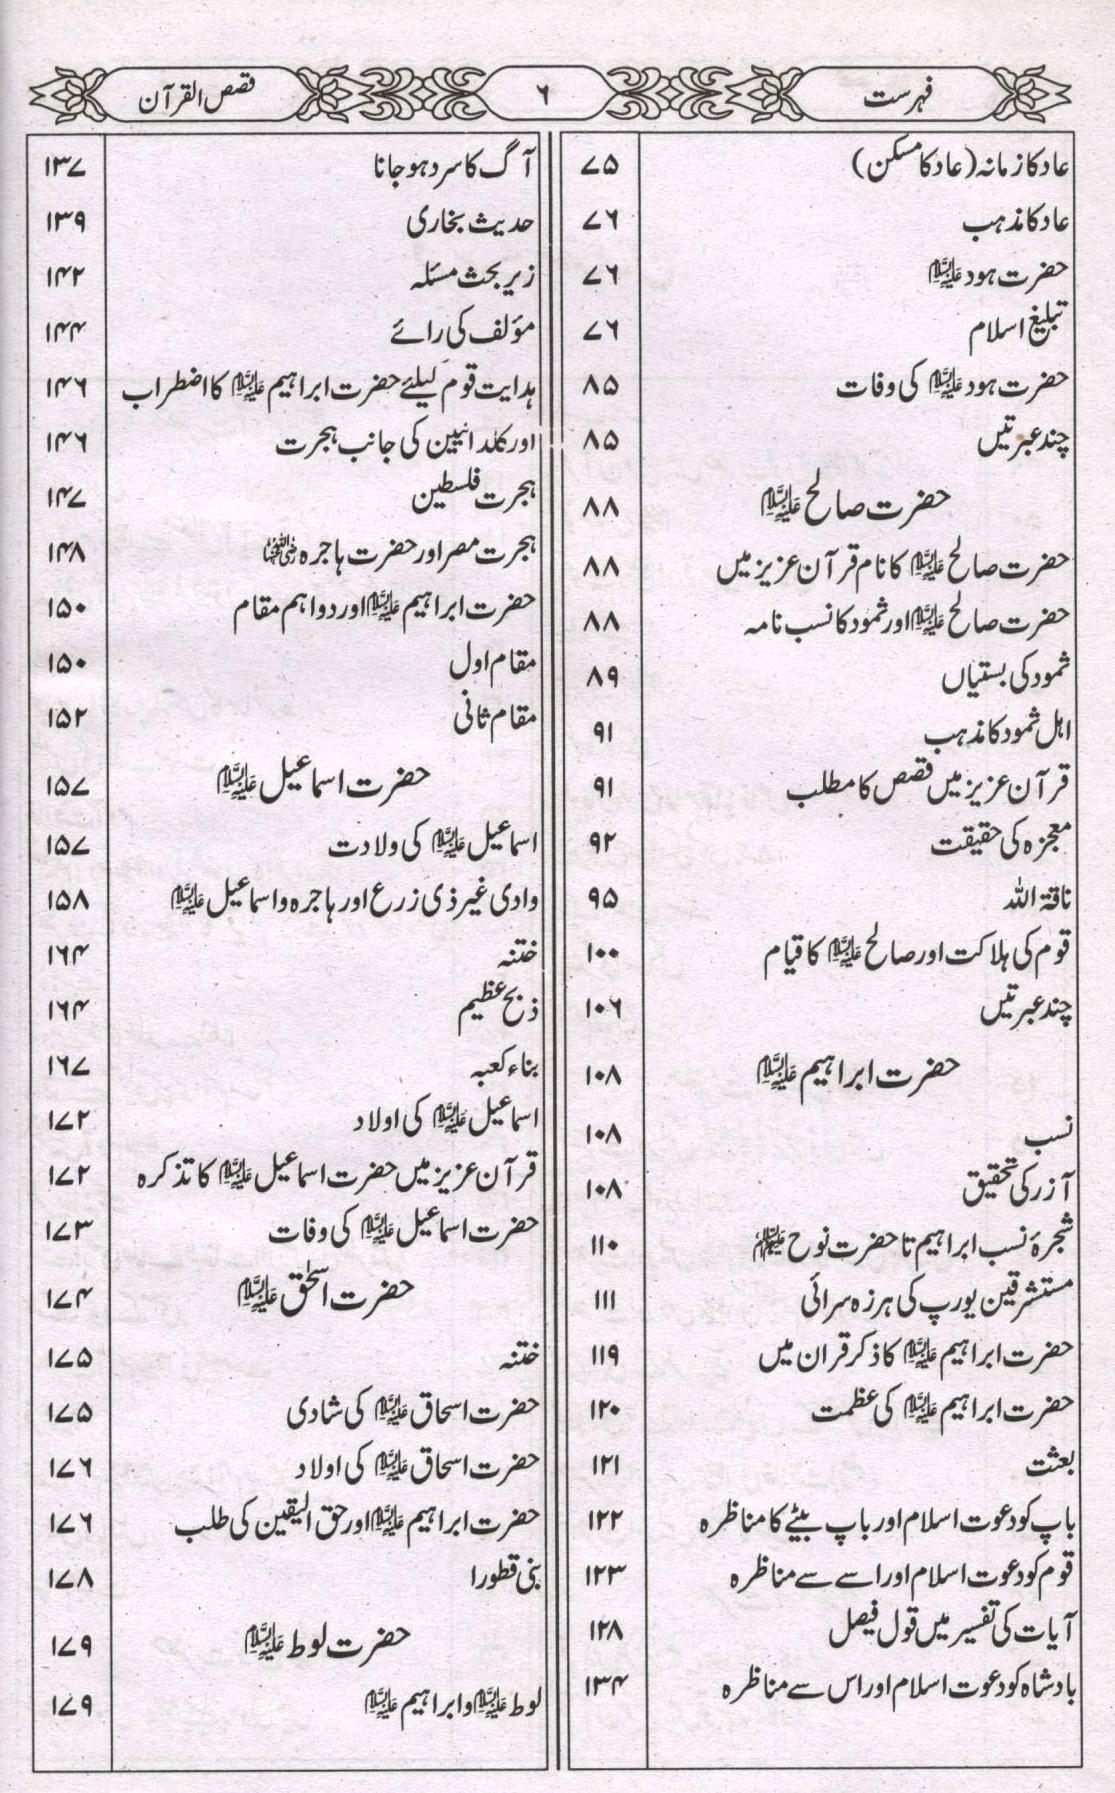 فہرست ۶ قصص القرآن
عاد کا زمانہ (عاد کا مسکن) ۷۵
عاد کا مذہب ۷۶
حضرت ہود علیہ السلام ۷۶
تبلیغ اسلام ۷۶
حضرت ہود علیہ السلام کی وفات ۸۵
چند عبرتیں ۸۵
حضرت صالح علیہ السلام ۸۸
حضرت صالح علیہ السلام کا نام قرآن عزیز میں ۸۸
حضرت صالح علیہ السلام اور ثمود کا نسب نامہ ۸۸
ثمود کی بستیاں ۸۹
اہل ثمود کا مذہب ۹۱
قرآن عزیز میں قصص کا مطلب ۹۱
معجزہ کی حقیقت ۹۲
ناقۃ اللہ ۹۵
قوم کی ہلاکت اور صالح علیہ السلام کا قیام ۱۰۰
چند عبرتیں ۱۰۶
حضرت ابراہیم علیہ السلام ۱۰۸
نسب ۱۰۸
آزر کی تحقیق ۱۰۸
شجرۂ نسب ابراہیم تا حضرت نوح علیہم السلام ۱۱۰
مستشرقین یورپ کی ہرزہ سرائی ۱۱۱
حضرت ابراہیم علیہ السلام کا ذکر قران میں ۱۱۹
حضرت ابراہیم علیہ السلام کی عظمت ۱۲۰
بعثت ۱۲۱
باپ کو دعوت اسلام اور باپ بیٹے کا مناظرہ ۱۲۲
قوم کو دعوت اسلام اور اسے سے مناظرہ ۱۲۳
آیات کی تفسیر میں قول فیصل ۱۲۸
بادشاہ کو دعوت اسلام اور اس سے مناظرہ ۱۳۴
آگ کا سرد ہو جانا ۱۳۷
حدیث بخاری ۱۳۹
زیر بحث مسئلہ ۱۴۲
مؤلف کی رائے ۱۴۴
ہدایت قوم کیلئے حضرت ابراہیم علیہ السلام کا اضطراب ۱۴۶
اور کلدانیین کی جانب ہجرت ۱۴۶
ہجرت فلسطین ۱۴۷
ہجرت مصر اور حضرت ہاجرہ رضی اللہ عنہا ۱۴۸
حضرت ابراہیم علیہ السلام اور دو اہم مقام ۱۵۰
مقام اول ۱۵۰
مقام ثانی ۱۵۲
حضرت اسماعیل علیہ السلام ۱۵۷
اسماعیل علیہ السلام کی ولادت ۱۵۷
وادی غیر ذی زرع اور ہاجرہ و اسماعیل علیہ السلام ۱۵۸
ختنہ ۱۶۴
ذبح عظیم ۱۶۴
بناء کعبہ ۱۶۷
اسماعیل علیہ السلام کی اولاد ۱۷۲
قرآن عزیز میں حضرت اسماعیل علیہ السلام کا تذکرہ ۱۷۲
حضرت اسماعیل علیہ السلام کی وفات ۱۷۳
حضرت اسحٰق علیہ السلام ۱۷۴
ختنہ ۱۷۵
حضرت اسحاق علیہ السلام کی شادی ۱۷۵
حضرت اسحاق علیہ السلام کی اولاد ۱۷۶
حضرت ابراہیم علیہ السلام اور حق الیقین کی طلب ۱۷۶
بنی قطورا ۱۷۸
حضرت لوط علیہ السلام ۱۷۹
لوط علیہ السلام و ابراہیم علیہ السلام ۱۷۹